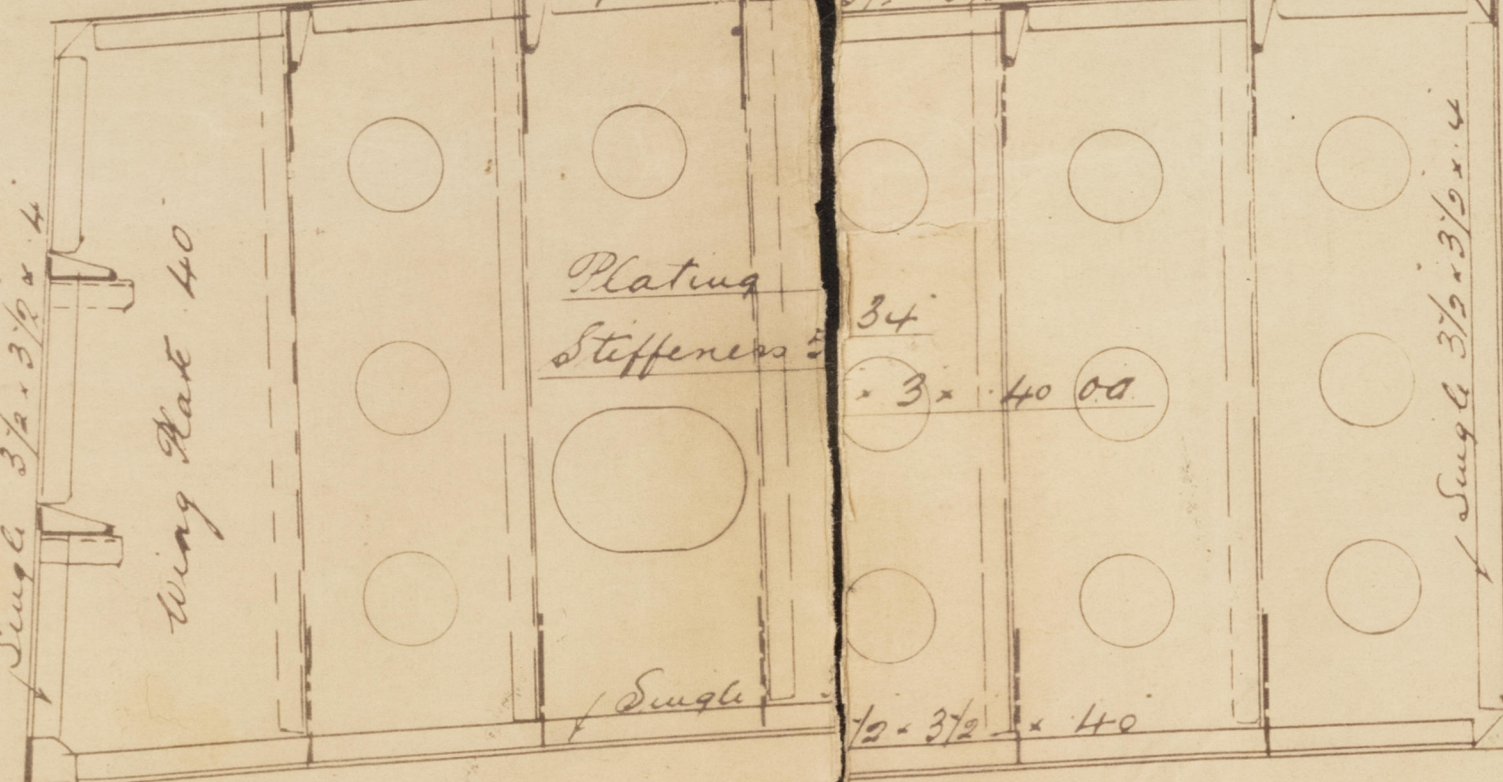 Single 3½ × 3½ × .4
Wing Plate .40
Plating .34
Stiffeners 5 × 3 × .40 oa
Single ½ × 3½ × .40
Single 3½ × 3½ × .4